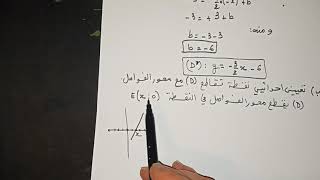 -3 = +3 + b
ومنه:
b = -3-3
b = -6
(D'): y = -3/2 x - 6
ب) تعيين احداثيي نقطة تقاطع (D) مع محور الفواصل
(D) يقطع محور الفواصل في النقطة E(x; 0)